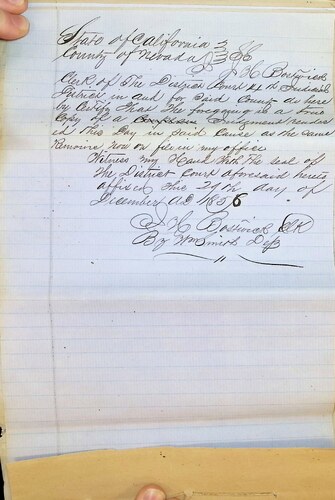 State of California }
County of Nevada } SS
J H Bostwick
Clerk of The District Court 14th Judicial
District in and for Said County do here
by Certify That The foregoing is a true
Copy of a Judgment render
ed This day in Said Cause as the same
Remains now on file in my office
Witness my Hand with The seal of
The District Court aforesaid hereto
affixed this 29th day of
December AD 1856
J H Bostwick Clk
By Wm Smith Dep